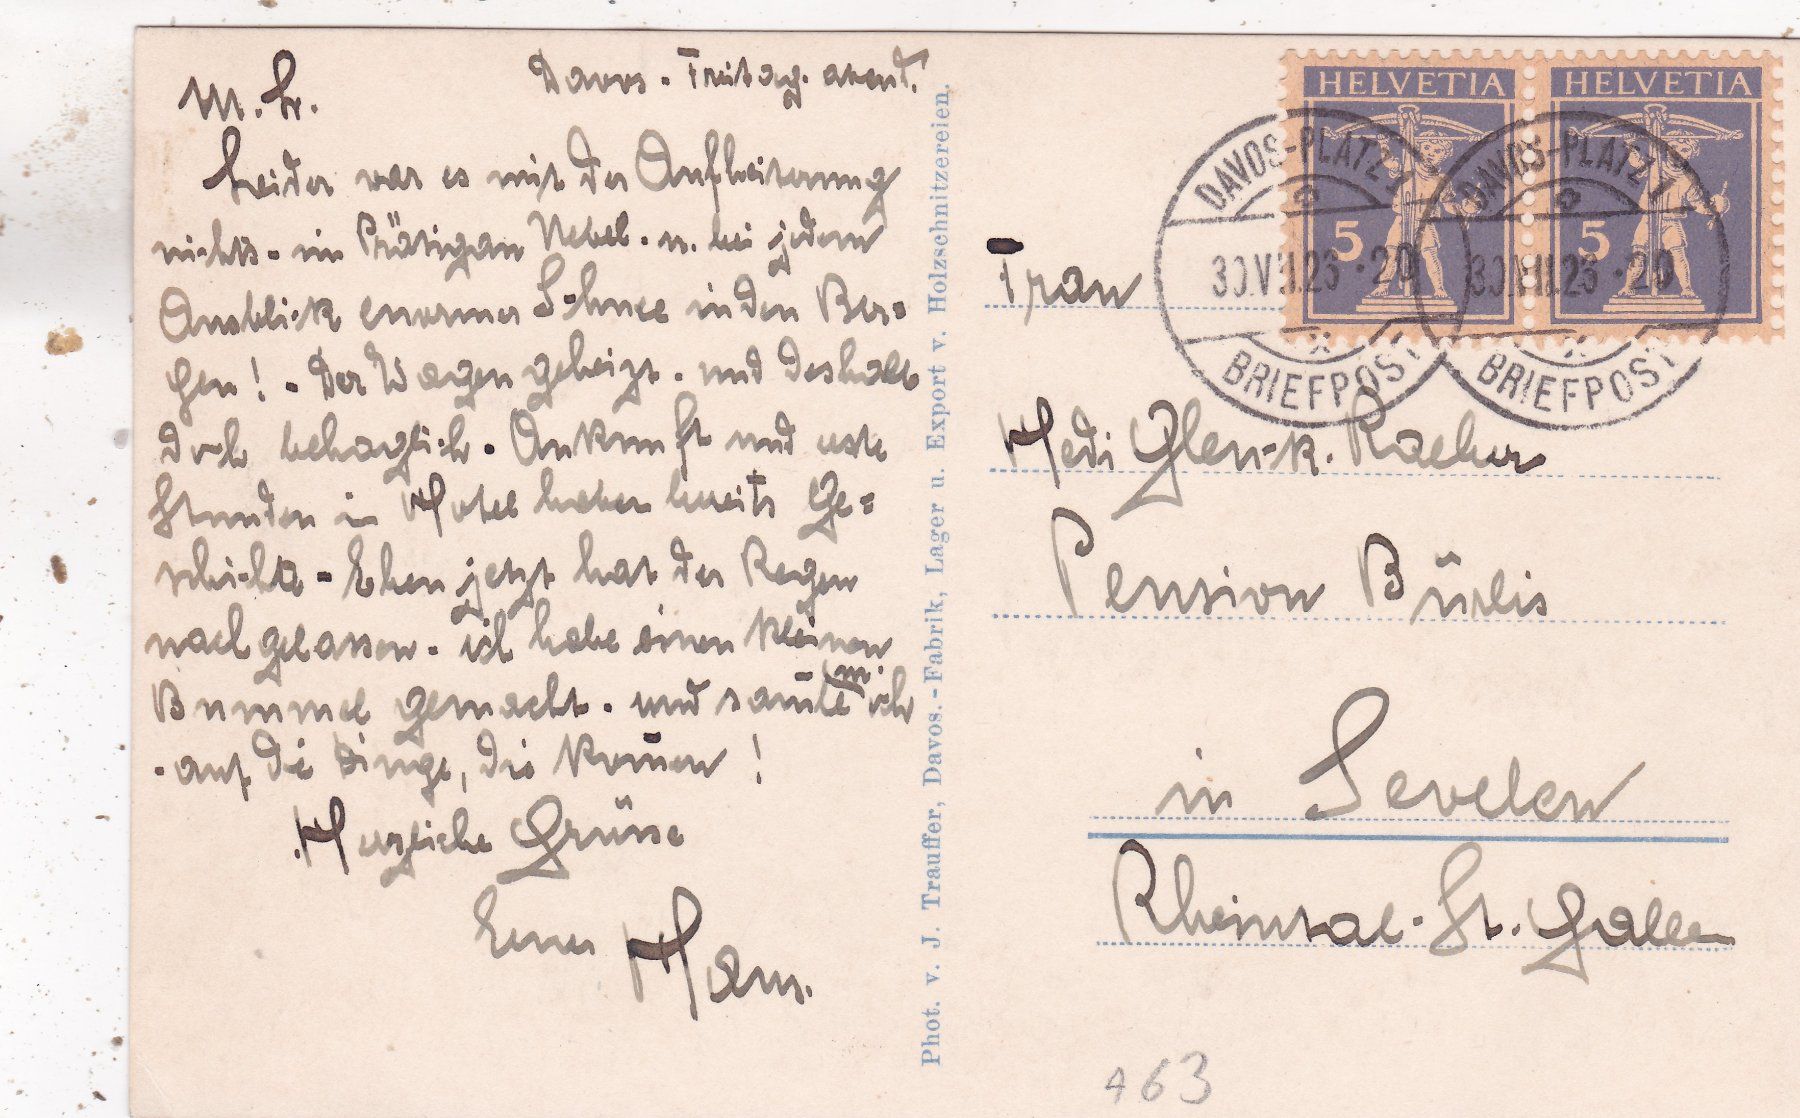 Davos. Freitag. abend.
M. L.
Leider war es mit der Aufheiterung
nichts. im Prätigau Nebel. u. bei jedem
Ausblick enormer Schnee in den Ber=
gen! . Der Wagen geheizt. und deshalb
doch behaglich. Ankunft und erste
Stunden in Hotel haben bereits Ge=
schichte - Eben jetzt hat der Regen
nachgelassen. ich habe einen kleinen
Bummel gemacht. und sam̄le m. ich
. auf die Dinge, die kom̄en !
Herzliche Grüsse
Euer Hans.
Phot. v. J. Trauffer, Davos.-Fabrik, Lager u. Export v. Holzschnitzereien.
HELVETIA HELVETIA
5 5
DAVOS-PLATZ 1
30.VIII.23.20
BRIEFPOST
DAVOS-PLATZ 1
30.VIII.23.20
BRIEFPOST
Frau
Hedi Glenck. Racher
Pension Bürlis
in Sevelen
Rheintal. St. Gallen
463